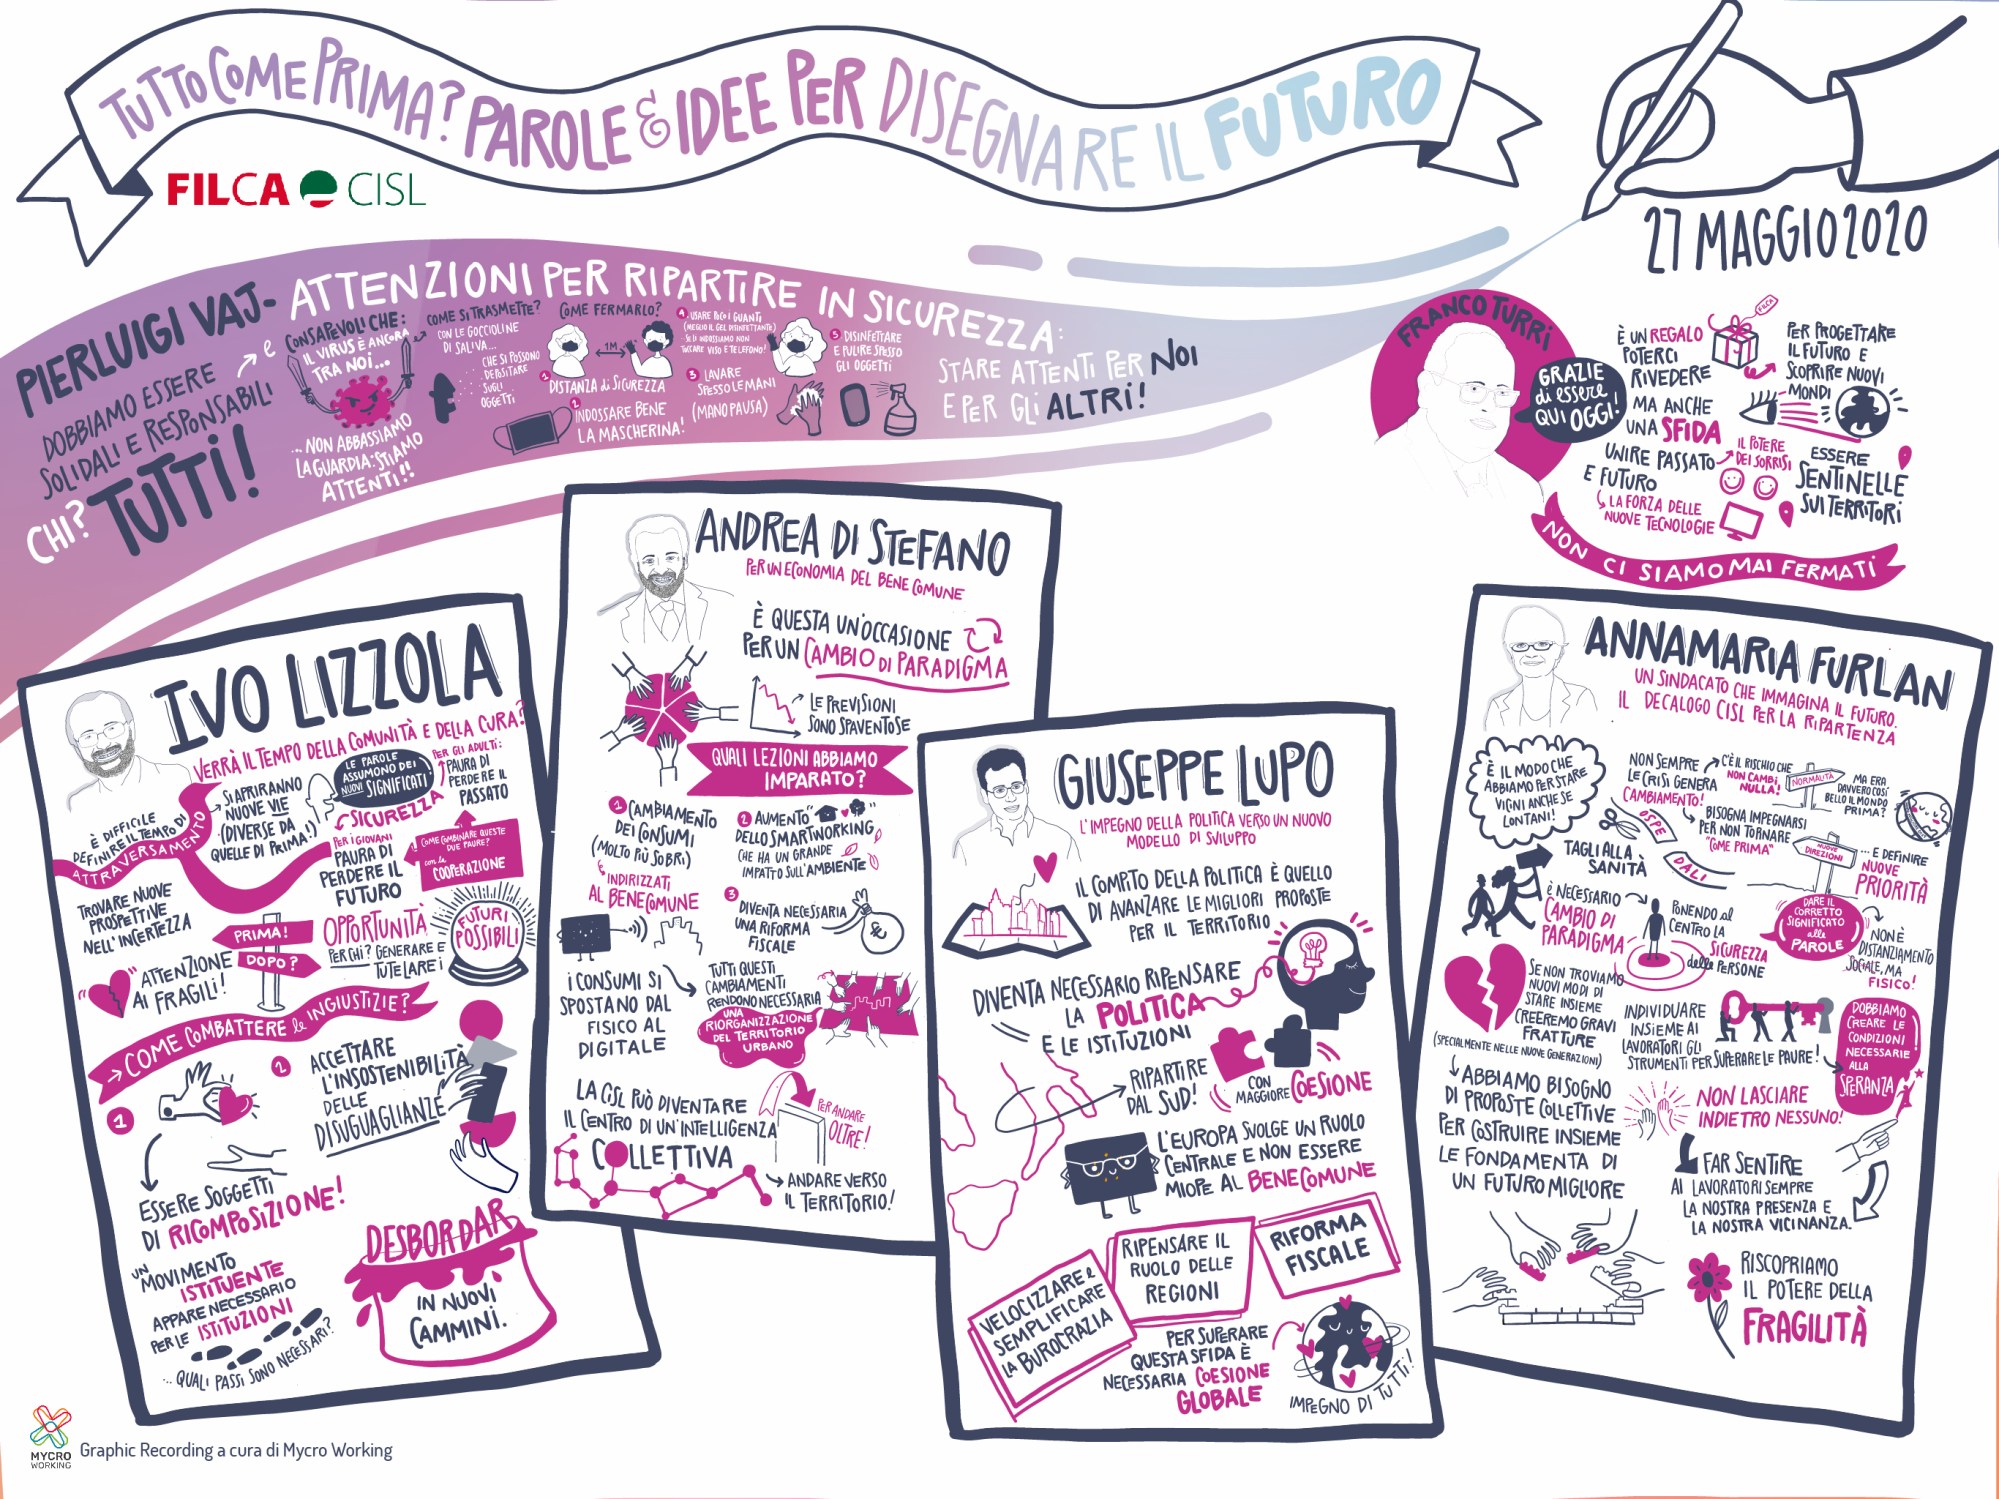 TUTTO COME PRIMA? PAROLE & IDEE PER DISEGNARE IL FUTURO
FILCA CISL
27 MAGGIO 2020
PIERLUIGI VAJ- ATTENZIONI PER RIPARTIRE IN SICUREZZA:
DOBBIAMO ESSERE
SOLIDALI E RESPONSABILI
CHI? TUTTI!
e
CONSAPEVOLI CHE:
IL VIRUS È ANCORA
TRA NOI...
...NON ABBASSIAMO
LA GUARDIA: STIAMO
ATTENTI!!
COME SI TRASMETTE?
CON LE GOCCIOLINE
DI SALIVA...
CHE SI POSSONO
DEPOSITARE
SUGLI
OGGETTI
COME FERMARLO?
1M
1 DISTANZA di SICUREZZA
2 INDOSSARE BENE
LA MASCHERINA!
3 LAVARE
SPESSO LE MANI
(MANOPAUSA)
4 USARE POCO I GUANTI
(MEGLIO IL GEL DISINFETTANTE)
· SE LI INDOSSIAMO NON
TOCCARE VISO E TELEFONO!
5 DISINFETTARE
E PULIRE SPESSO
GLI OGGETTI
STARE ATTENTI PER NOI
E PER GLI ALTRI!
FRANCO TURRI
GRAZIE
di essere
QUI OGGI!
È UN REGALO
POTERCI
RIVEDERE
MA ANCHE
UNA SFIDA
UNIRE PASSATO
E FUTURO
LA FORZA DELLE
NUOVE TECNOLOGIE
FILCA
PER PROGETTARE
IL FUTURO E
SCOPRIRE NUOVI
MONDI
IL POTERE
DEI SORRISI
ESSERE
SENTINELLE
SUI TERRITORI
NON CI SIAMO MAI FERMATI
IVO LIZZOLA
VERRÀ IL TEMPO DELLA COMUNITÀ E DELLA CURA?
È DIFFICILE
DEFINIRE IL TEMPO DI
ATTRAVERSAMENTO
SI APRIRANNO
NUOVE VIE
(DIVERSE DA
QUELLE DI PRIMA!)
LE PAROLE
ASSUMONO DEI
NUOVI SIGNIFICATI
SICUREZZA
PER GLI ADULTI:
PAURA DI
PERDERE IL
PASSATO
PER I GIOVANI
PAURA DI
PERDERE IL
FUTURO
COME COMBINARE QUESTE
DUE PAURE?
con la
COOPERAZIONE
TROVARE NUOVE
PROSPETTIVE
NELL'INCERTEZZA
PRIMA!
DOPO?
OPPORTUNITÀ
PER CHI? GENERARE E
TUTELARE I
FUTURI
POSSIBILI
ATTENZIONE
AI FRAGILI!
→ COME COMBATTERE le INGIUSTIZIE?
1
2 ACCETTARE
L'INSOSTENIBILITÀ
DELLE
DISUGUAGLIANZE
ESSERE SOGGETTI
DI RICOMPOSIZIONE!
UN
MOVIMENTO
ISTITUENTE
APPARE NECESSARIO
PER LE ISTITUZIONI
... QUALI PASSI SONO NECESSARI?
DESBORDAR
IN NUOVI
CAMMINI.
ANDREA DI STEFANO
PER UN ECONOMIA DEL BENE COMUNE
È QUESTA UN'OCCASIONE
PER UN CAMBIO DI PARADIGMA
LE PREVISIONI
SONO SPAVENTOSE
QUALI LEZIONI ABBIAMO
IMPARATO?
1 CAMBIAMENTO
DEI CONSUMI
(MOLTO PIÙ SOBRI)
INDIRIZZATI
AL BENE COMUNE
2 AUMENTO
DELLO SMARTWORKING
CHE HA UN GRANDE
IMPATTO SULL'AMBIENTE
3
DIVENTA NECESSARIA
UNA RIFORMA
FISCALE
€
I CONSUMI SI
SPOSTANO DAL
FISICO AL
DIGITALE
TUTTI QUESTI
CAMBIAMENTI
RENDONO NECESSARIA
UNA
RIORGANIZZAZIONE
DEL TERRITORIO
URBANO
LA CISL PUÒ DIVENTARE
IL CENTRO DI UN'INTELLIGENZA
COLLETTIVA
PER ANDARE
OLTRE!
ANDARE VERSO
IL TERRITORIO!
GIUSEPPE LUPO
L'IMPEGNO DELLA POLITICA VERSO UN NUOVO
MODELLO DI SVILUPPO
IL COMPITO DELLA POLITICA È QUELLO
DI AVANZARE LE MIGLIORI PROPOSTE
PER IL TERRITORIO
DIVENTA NECESSARIO RIPENSARE
LA POLITICA
E LE ISTITUZIONI
RIPARTIRE
DAL SUD!
CON
MAGGIORE COESIONE
L'EUROPA SVOLGE UN RUOLO
CENTRALE E NON ESSERE
MIOPE AL BENE COMUNE
VELOCIZZARE e
SEMPLIFICARE
LA BUROCRAZIA
RIPENSARE IL
RUOLO DELLE
REGIONI
RIFORMA
FISCALE
PER SUPERARE
QUESTA SFIDA È
NECESSARIA COESIONE
GLOBALE
IMPEGNO DI TUTTI!
ANNAMARIA FURLAN
UN SINDACATO CHE IMMAGINA IL FUTURO.
IL DECALOGO CISL PER LA RIPARTENZA
È IL MODO CHE
ABBIAMO PER STARE
VICINI ANCHE SE
LONTANI!
NON SEMPRE
LE CRISI GENERA
CAMBIAMENTO!
C'È IL RISCHIO CHE
NON CAMBI
NULLA!
NORMALITÀ
MA ERA
DAVVERO COSÌ
BELLO IL MONDO
PRIMA?
BISOGNA IMPEGNARSI
PER NON TORNARE
"COME PRIMA"
NUOVE
DIREZIONI
... E DEFINIRE
NUOVE
PRIORITÀ
OSPE
DALI
TAGLI ALLA
SANITÀ
È NECESSARIO
CAMBIO DI
PARADIGMA
PONENDO al
CENTRO LA
SICUREZZA
delle PERSONE
DARE IL
CORRETTO
SIGNIFICATO
alle
PAROLE
NON È
DISTANZIAMENTO
SOCIALE, MA
FISICO!
SE NON TROVIAMO
NUOVI MODI DI
STARE INSIEME
CREEREMO GRAVI
FRATTURE
(SPECIALMENTE NELLE NUOVE GENERAZIONI)
INDIVIDUARE
INSIEME AI
LAVORATORI GLI
STRUMENTI PER SUPERARE LE PAURE!
DOBBIAMO
CREARE LE
CONDIZIONI
NECESSARIE
ALLA
SPERANZA
ABBIAMO BISOGNO
DI PROPOSTE COLLETTIVE
PER COSTRUIRE INSIEME
LE FONDAMENTA DI
UN FUTURO MIGLIORE
NON LASCIARE
INDIETRO NESSUNO!
FAR SENTIRE
AI LAVORATORI SEMPRE
LA NOSTRA PRESENZA E
LA NOSTRA VICINANZA.
RISCOPRIAMO
IL POTERE DELLA
FRAGILITÀ
MYCRO
WORKING
Graphic Recording a cura di Mycro Working